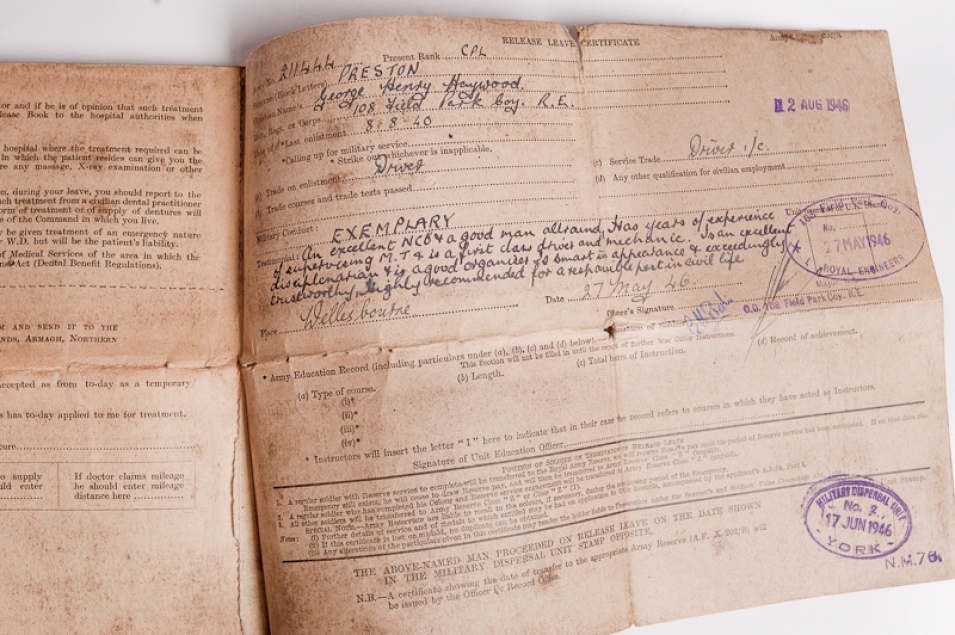 or and if he is of opinion that such treatment
lease Book to the hospital authorities when
hospital where the treatment required can be
in which the patient resides can give you the
re any massage, X-ray examination or other
n, during your leave, you should report to the
ch treatment from a civilian dental practitioner
orm of treatment or of supply of dentures will
e of the Command in which you live.
be given treatment of an emergency nature
W.D. but will be the patient's liability.
of Medical Services of the area in which the
Act (Dental Benefit Regulations).
M AND SEND IT TO THE
NDS, ARMAGH, NORTHERN
accepted as from to-day as a temporary
s has to-day applied to me for treatment.
ture
o supply
uld enter
If doctor claims mileage
he should enter mileage
distance here
RELEASE LEAVE CERTIFICATE
Army
No. 211444 Present Rank CPL
(Block Letters) PRESTON
George Henry Haywood
Regt. or Corps 108 Field Park Coy. R.E.
last enlistment 8-8-40
*Calling up for military service
* Strike out whichever is inapplicable.
12 AUG 1946
(a) Trade on enlistment Driver
(c) Service Trade Driver i/c.
(b) Trade courses and trade tests passed
(d) Any other qualification for civilian employment
Military Conduct: EXEMPLARY
Testimonial: An excellent NCO & a good man allround. Has years of experience
of supervising M.T & is a first class driver and mechanic. Is an excellent
disciplinarian & is a good organiser is smart in appearance & exceedingly
trustworthy. Highly recommended for a responsible post in civil life
Place Wellesbourne
Date 27 May 46
Officer's Signature
108 FIELD PARK COY.
No.
27 MAY 1946
ROYAL ENGINEERS
Major
O.C. 108 Field Park Coy. R.E.
* Army Education Record (including particulars under (a), (b), (c) and (d) below)
This Section will not be filled in until the result of further War Office Instructions.
(a) Type of course.
(b) Length.
(c) Total hours of Instruction.
(d) Record of achievement.
(i)*
(ii)*
(iii)*
(iv)*
* Instructors will insert the letter "I" here to indicate that in their case the record refers to courses in which they have acted as Instructors.
Signature of Unit Education Officer
POSITION OF SOLDIER ON TERMINATION OF RELEASE LEAVE
THE ABOVE-NAMED MAN PROCEEDED ON RELEASE LEAVE ON THE DATE SHOWN
IN THE MILITARY DISPERSAL UNIT STAMP OPPOSITE.
N.B.—A certificate showing the date of transfer to the appropriate Army Reserve (A.F. X.202/B) will
be issued by the Officer i/c Record Office.
MILITARY DISPERSAL UNIT
No. 2.
17 JUN 1946
- YORK -
N.M.76.